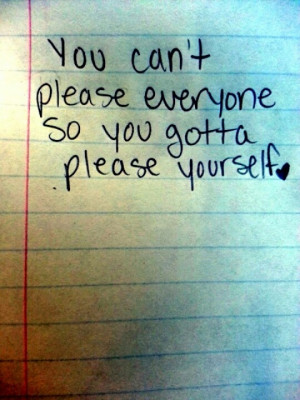 You can't
please everyone
So you gotta
please yourself♥